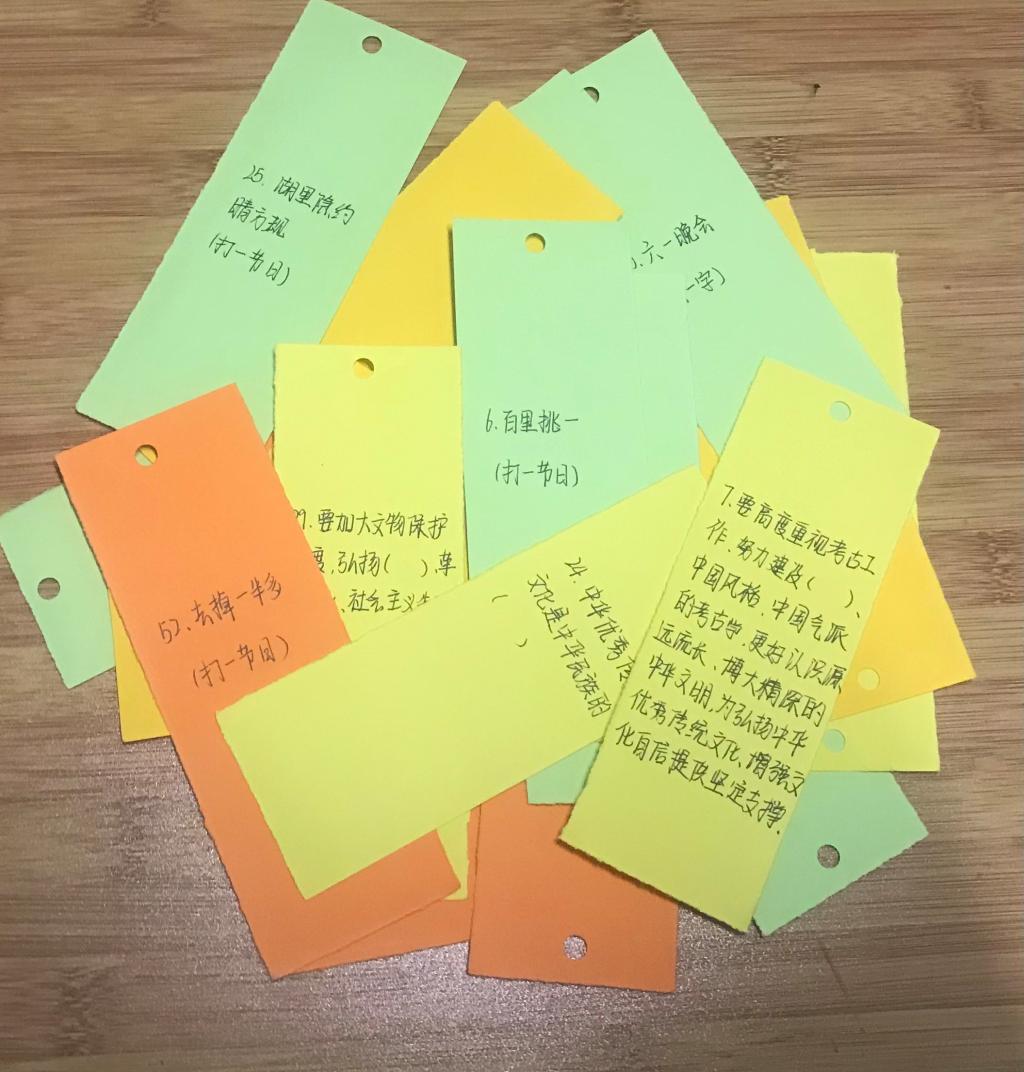 25. 湖里隐约
晴方现
(打一节日)
.六一晚会
一字)
6.百里挑一
(打一节日)
9.要加大文物保护
度,弘扬( )、革
、社会主义先
52、去掉一半多
(打一节日)
24.中华优秀传
文化是中华民族的
( )
7.要高度重视考古工
作、努力建设( )、
中国风格、中国气派
的考古学,更好认识源
远流长、博大精深的
中华文明,为弘扬中华
优秀传统文化、增强文
化自信提供坚定支撑.